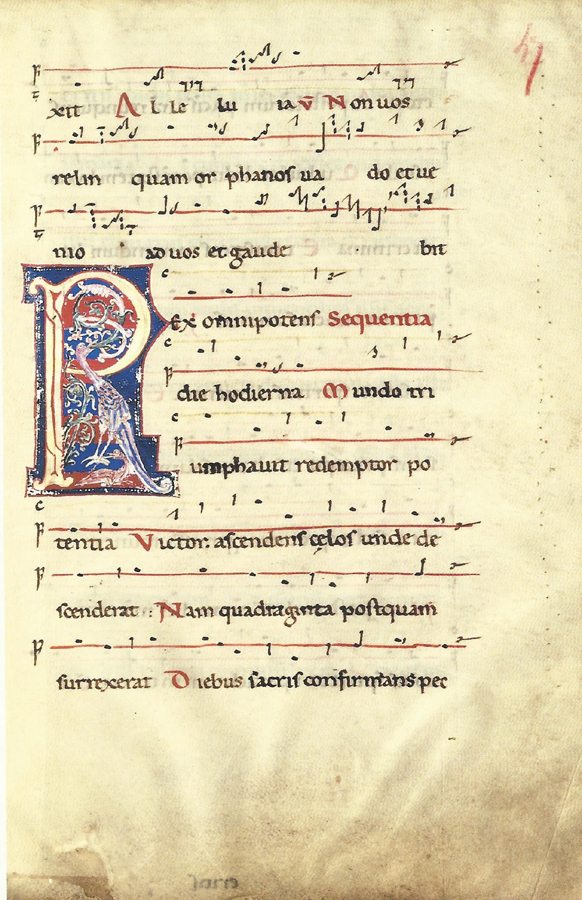 47
xit Al le lu ia V Non vos
relin quam or phanos va do et ve
nio ad vos et gaude bit
Rex omnipotens Sequentia
die hodierna Mundo tri
umphavit redemptor po
tentia Victor. ascendens celos unde de
scenderat : Nam quadraginta postquam
surrexerat Diebus sacris confirmans pec